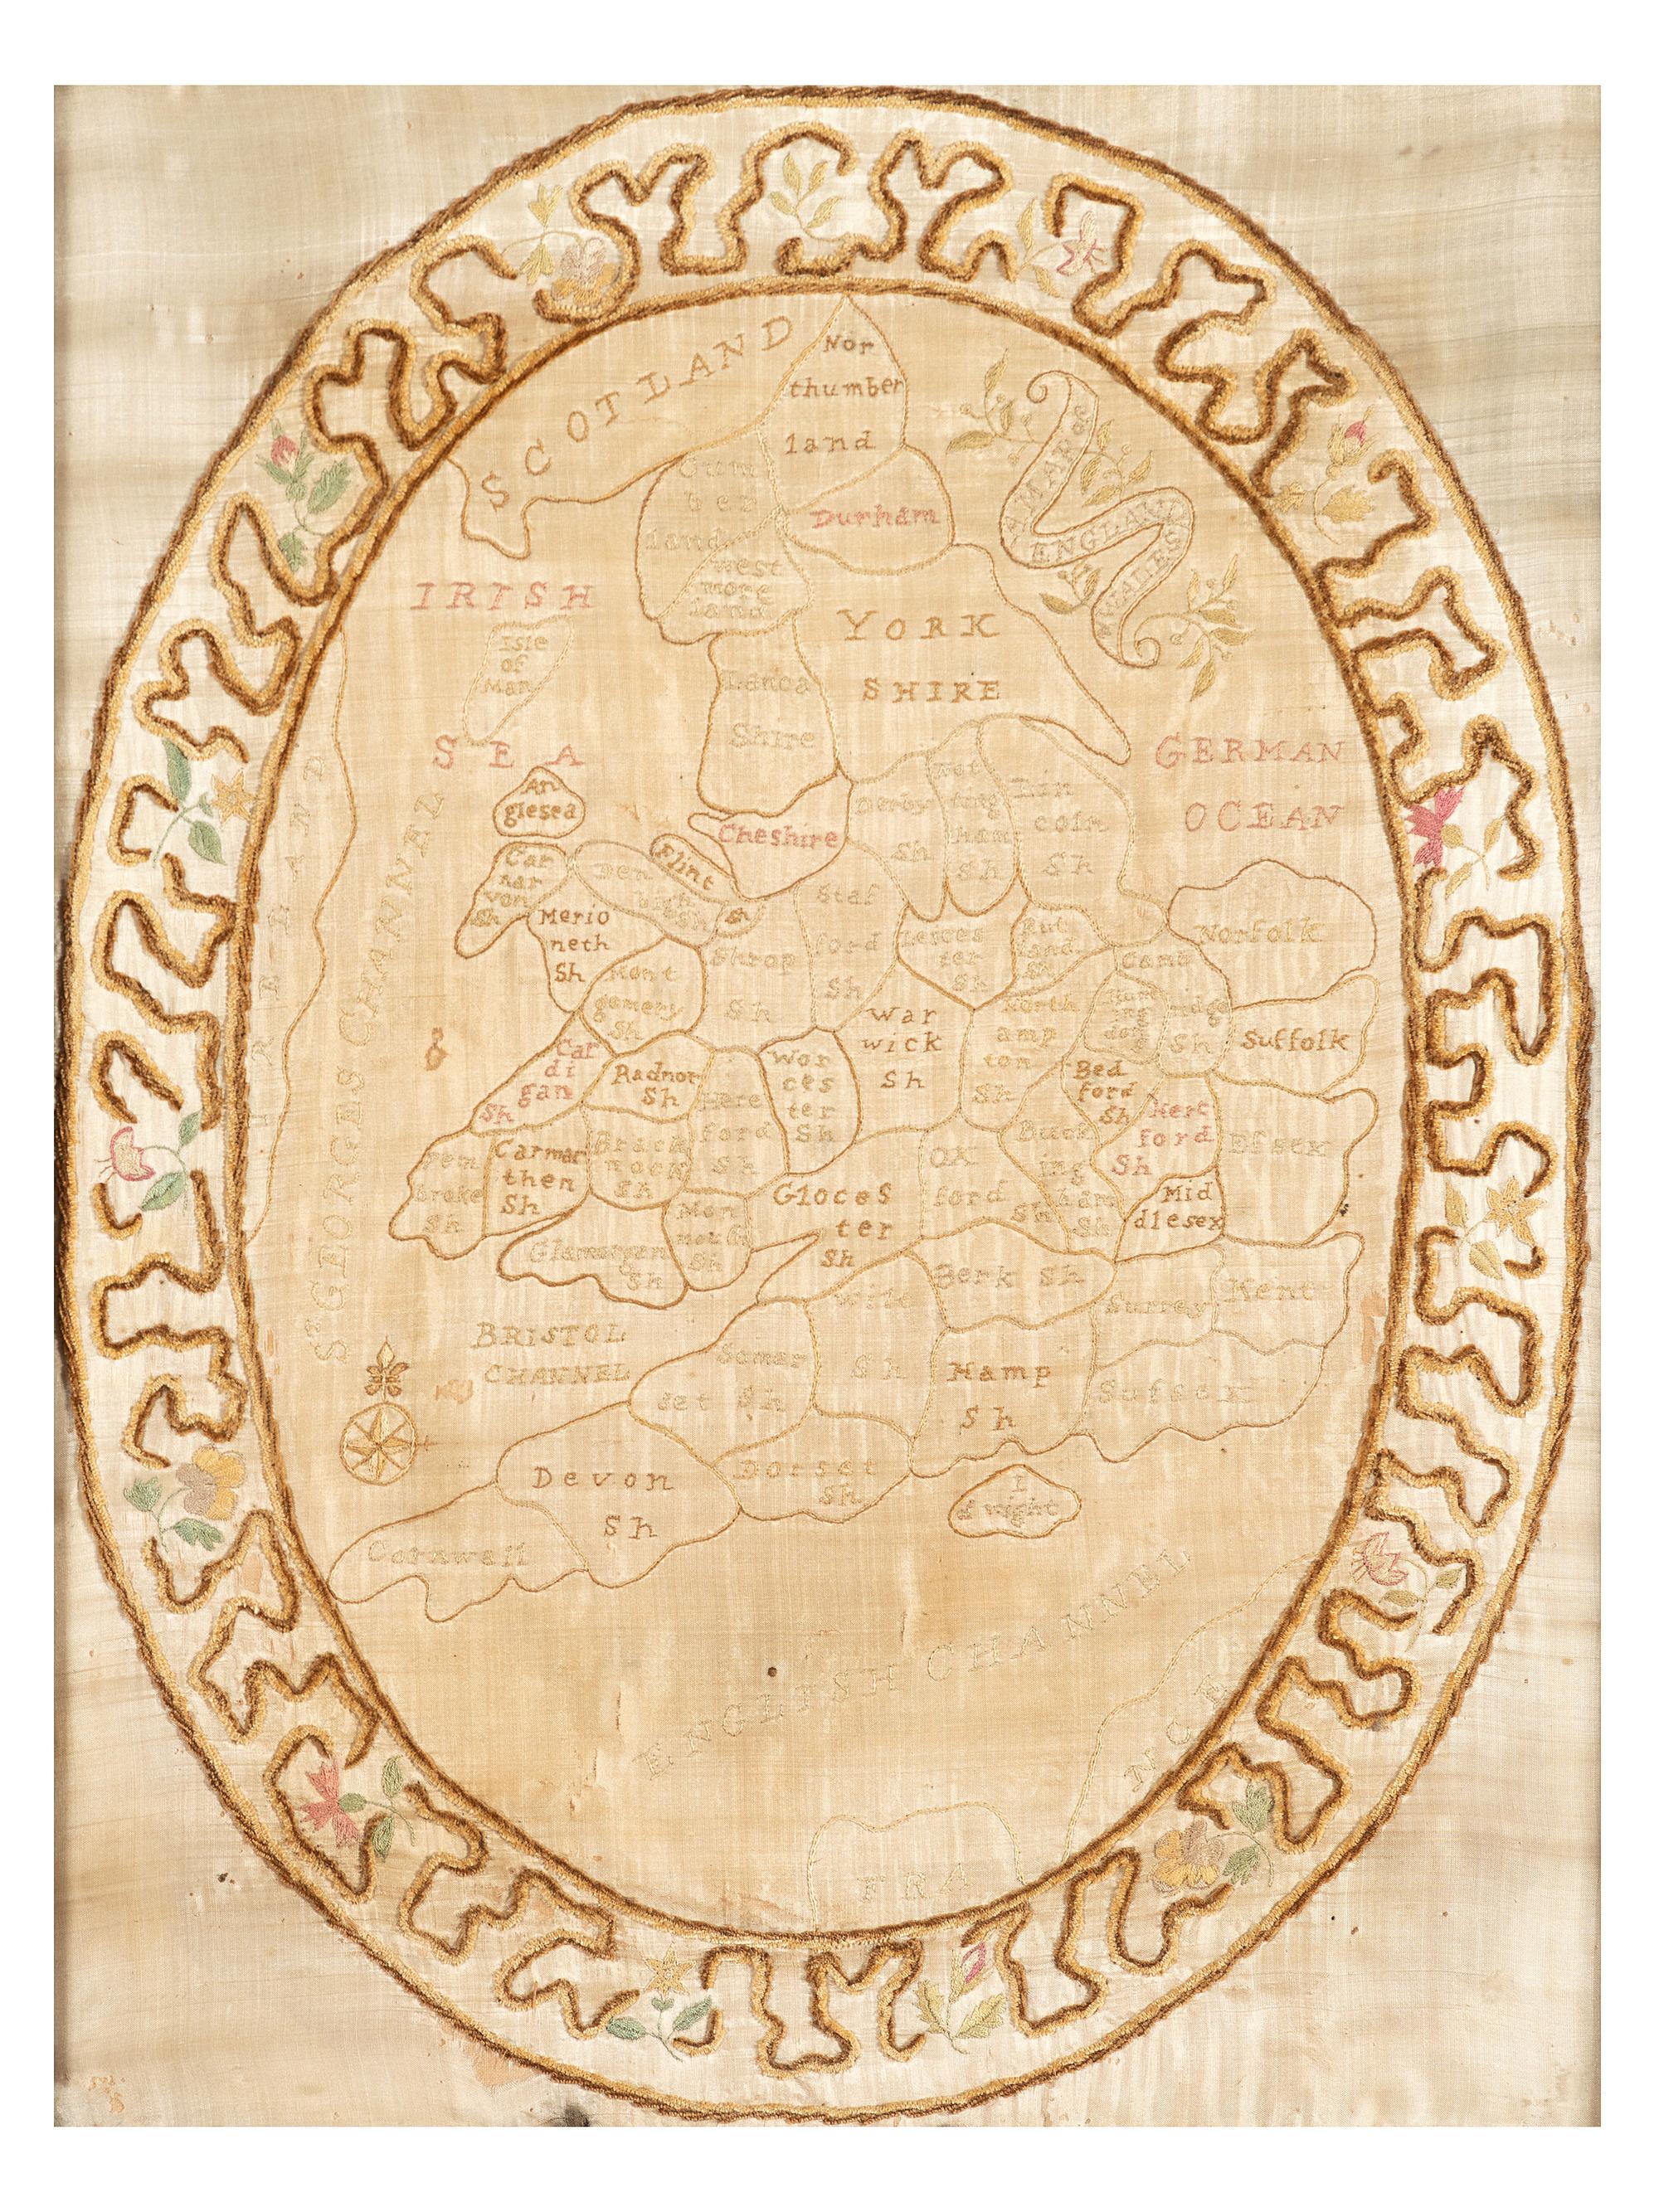 SCOTLAND
Nor
thumber
land
A MAP of
ENGLAND
& WALES
Cum
ber
land
Durham
west
more
land
IRISH
SEA
Isle
of
Man
YORK
SHIRE
Lanca
Shire
GERMAN
OCEAN
An
glesea
Cheshire
Derby
Sh
Not
ting
ham
Sh
Lin
coln
Sh
Car
nar
von
Sh
Den
bigh
Sh
Flint
Sh
Merio
neth
Sh
Mont
gomery
Sh
Shrop
Sh
Staf
ford
Sh
Leices
ter
Sh
Rut
land
Sh
Norfolk
Camb
ridge
Sh
Hun
ting
don
Suffolk
North
amp
ton
Sh
War
wick
Sh
Wor
ces
ter
Sh
Car
di
gan
Sh
Radnor
Sh
Here
ford
Sh
Bed
ford
Sh
Hert
ford
Sh
Essex
Buck
ing
ham
Sh
Ox
ford
Sh
Mid
dlesex
Gloces
ter
Sh
Pen
broke
Sh
Carmar
then
Sh
Breck
nock
Sh
Mon
mouth
Sh
Glamorgan
Sh
IRELAND
St GEORGES CHANNEL
BRISTOL
CHANNEL
Wilt
Sh
Berk Sh
Surrey
Kent
Somer
set Sh
Hamp
Sh
Sussex
Devon
Sh
Dorset
Sh
I
of wight
Cornwall
ENGLISH CHANNEL
FRA
NCE